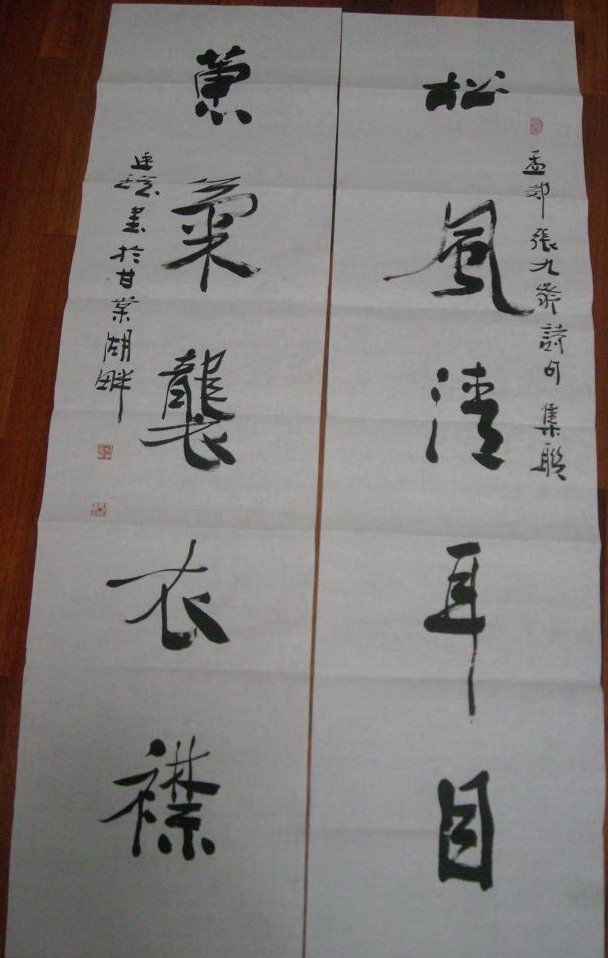 孟郊張九齡詩句集聯
松風清耳目
蕙氣襲衣襟
書於甘棠湖畔